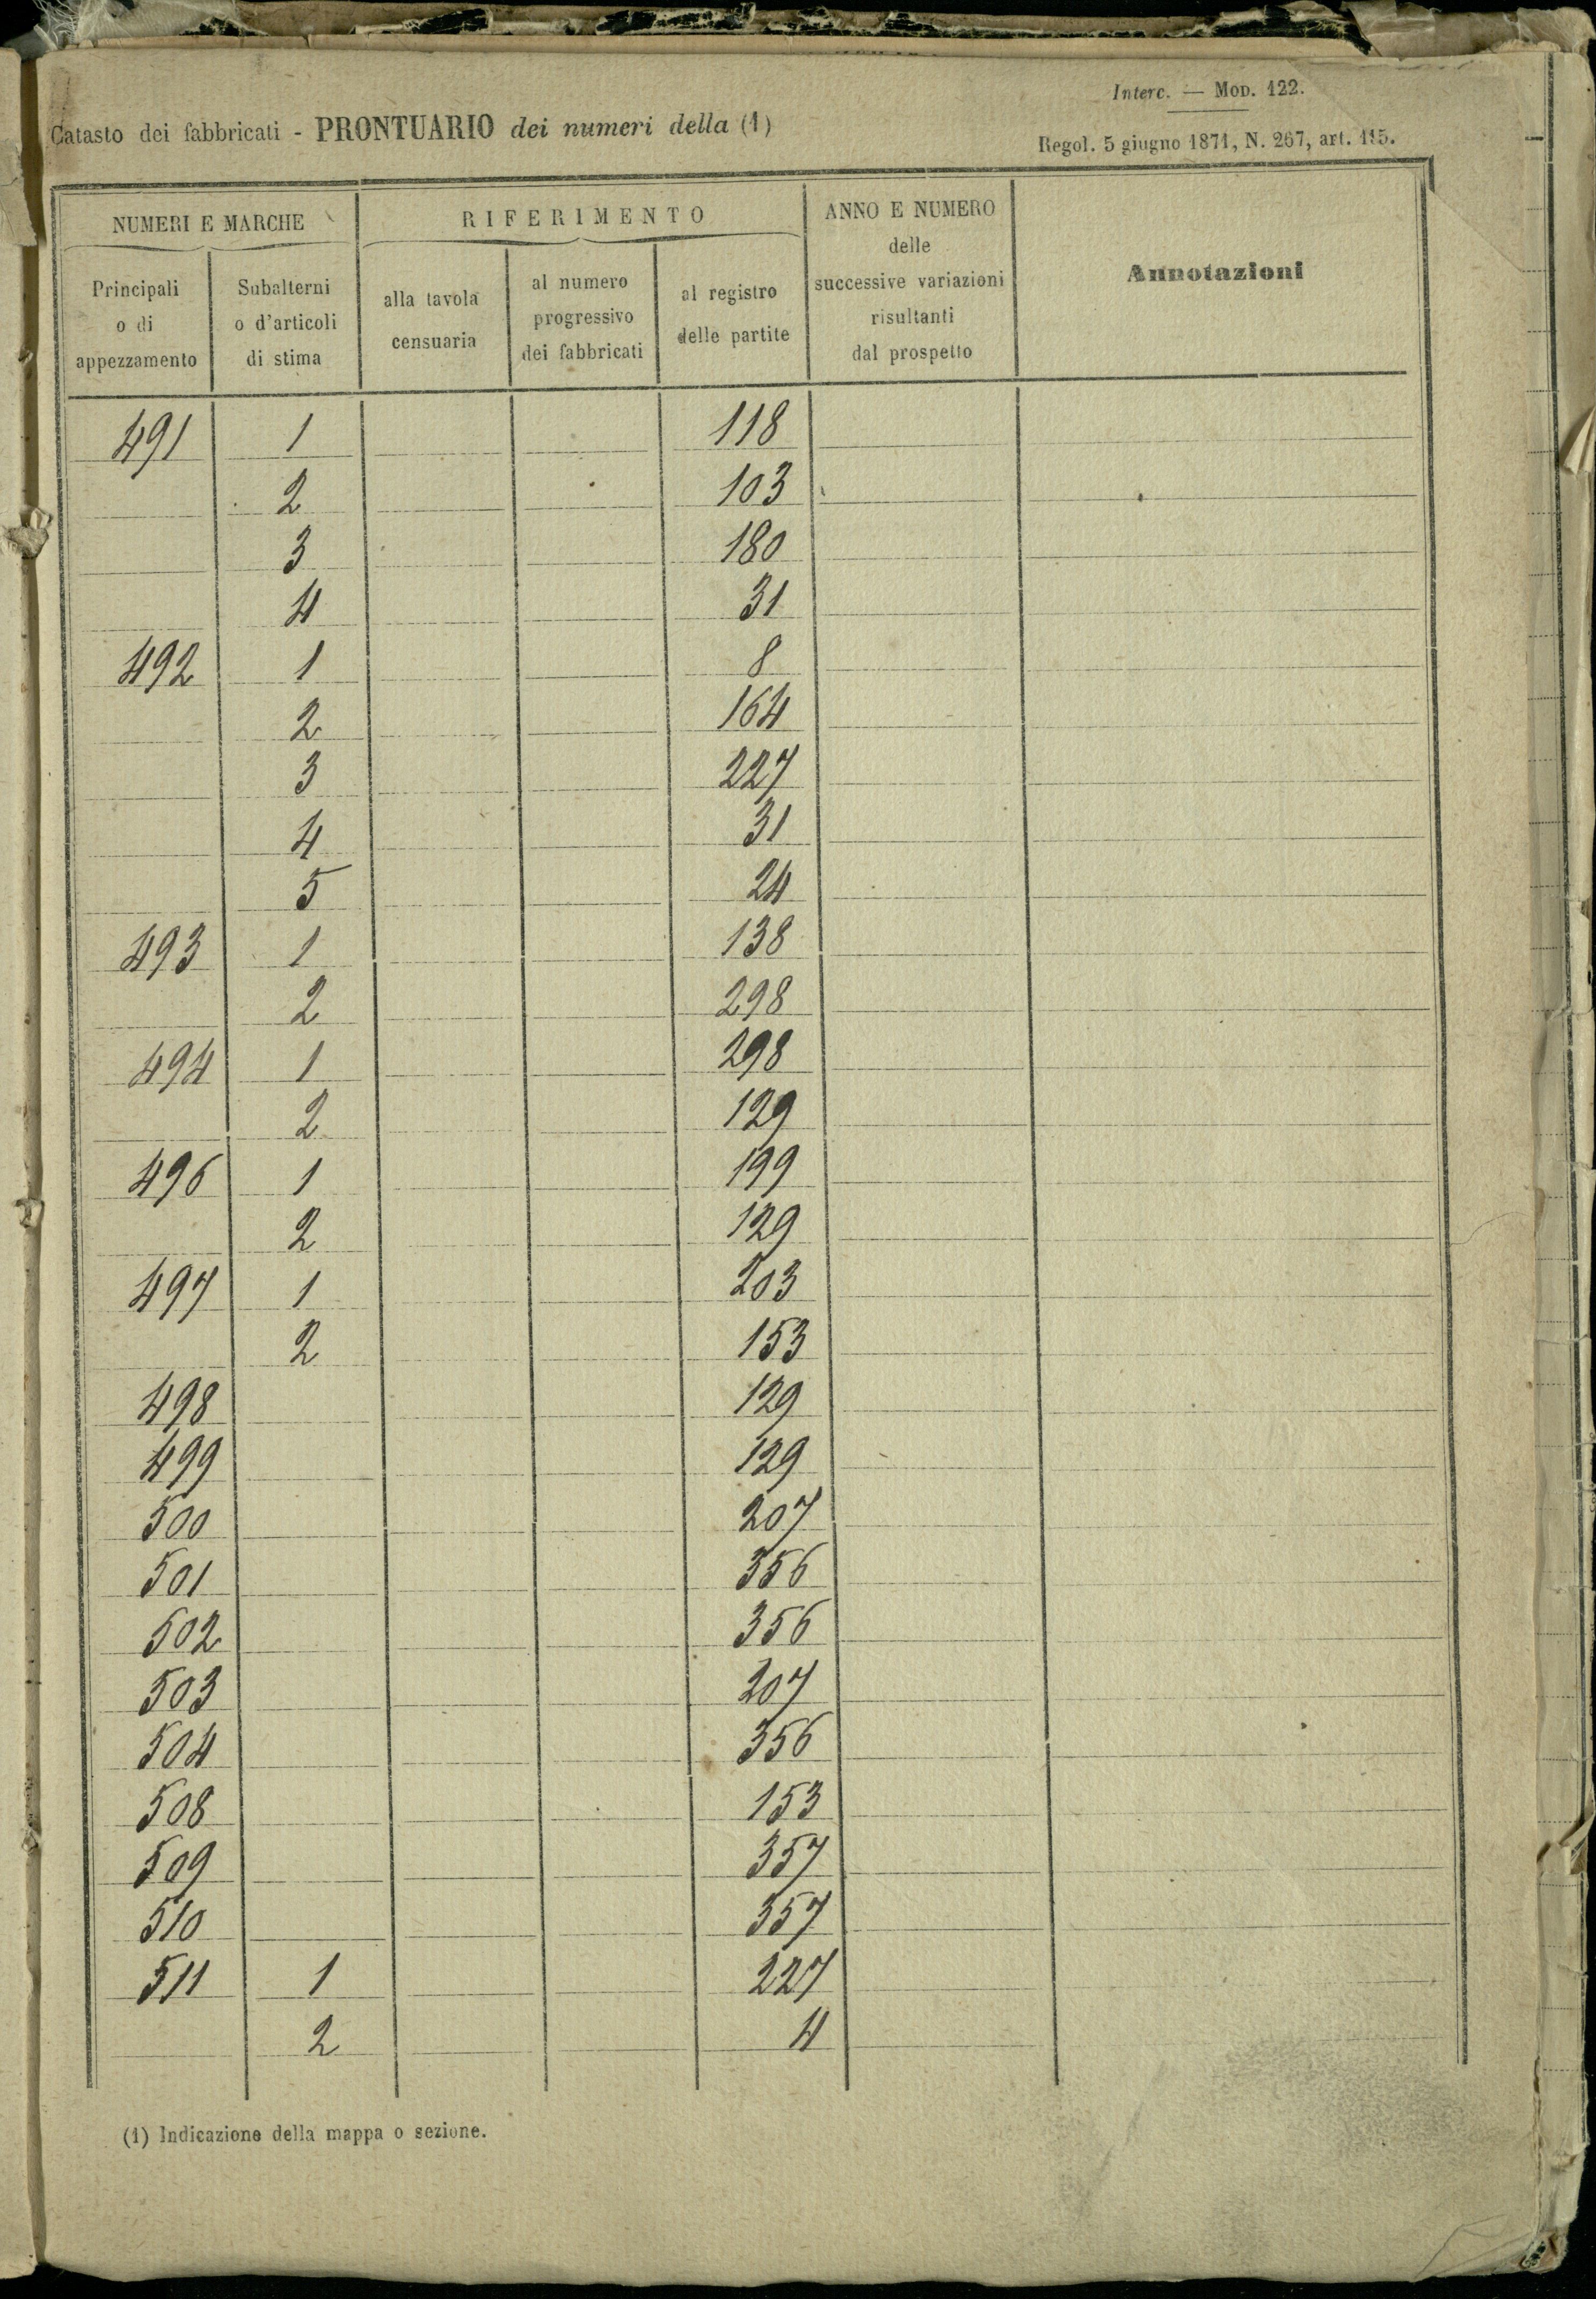 Interc. — Mod. 122.
Catasto dei fabbricati - PRONTUARIO dei numeri della (1)
Regol. 5 giugno 1871, N. 267, art. 115.
NUMERI E MARCHE
RIFERIMENTO
ANNO E NUMERO
delle
successive variazioni
risultanti
dal prospetto
Annotazioni
Principali
o di
appezzamento
Subalterni
o d'articoli
di stima
alla tavola
censuaria
al numero
progressivo
dei fabbricati
al registro
delle partite
491 1 118
2 103
3 180
4 31
492 1 8
2 164
3 227
4 31
5 24
493 1 138
2 298
494 1 298
2 129
496 1 199
2 129
497 1 203
2 153
498 129
499 129
500 207
501 356
502 356
503 207
504 356
508 153
509 357
510 357
511 1 227
2 4
(1) Indicazione della mappa o sezione.